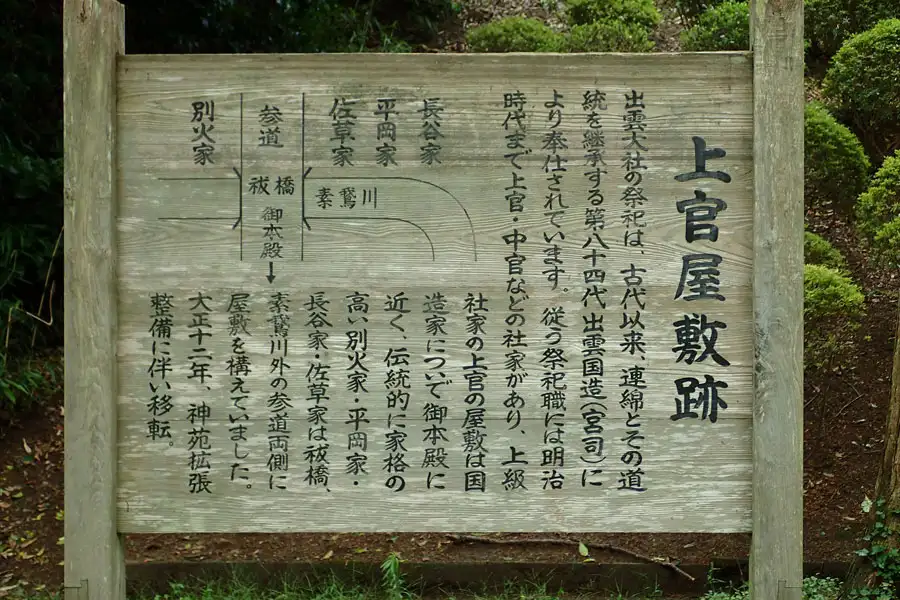 上官屋敷跡
出雲大社の祭祀は、古代以来、連綿とその道
統を継承する第八十四代出雲国造(宮司)に
より奉仕されています。従う祭祀職には明治
時代まで上官・中官などの社家があり、上級
社家の上官の屋敷は国
造家について御本殿に
近く、伝統的に家格の
高い別火家・平岡家・
長谷家・佐草家は祓橋、
素鵞川外の参道両側に
屋敷を構えていました。
大正十二年、神苑拡張
整備に伴い移転。
長谷家
平岡家
佐草家
素鵞川
参道
祓橋
御本殿
別火家